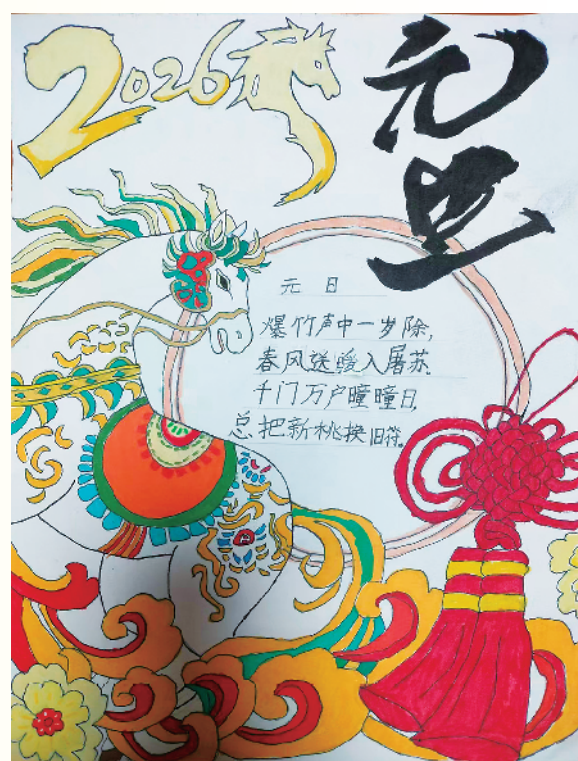 2026
元旦
元日
爆竹声中一岁除,
春风送暖入屠苏.
千门万户曈曈日,
总把新桃换旧符。